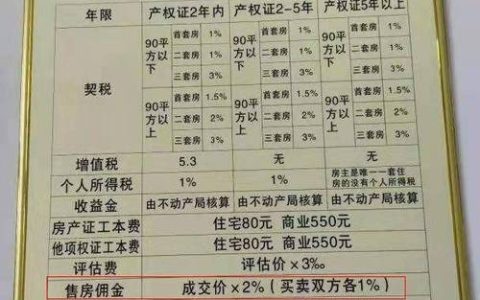 年限 产权证2年内 产权证2-5年 产权证5年以上
契税
90平方以下 首套房 1% 二套房 1% 三套房 3%
90平方以上 首套房 1.5% 二套房 2% 三套房 3%
90平方以下 首套房 1% 二套房 1% 三套房 3%
90平方以上 首套房 1.5% 二套房 2% 三套房 3%
90平方以下 首套房 1% 二套房 1% 三套房 3%
90平方以上 首套房 1.5% 二套房 2% 三套房 3%
增值税 5.3 无 无
个人所得税 1% 1% 房主是唯一一套住房的没有个人所得税
收益金 由不动产局核算 由不动产局核算 由不动产局核算
房产证工本费 住宅80元 商业550元
他项权证工本费 住宅80元 商业550元
评估费 评估价×3‰
售房佣金 成交价×2%(买卖双方各1%)